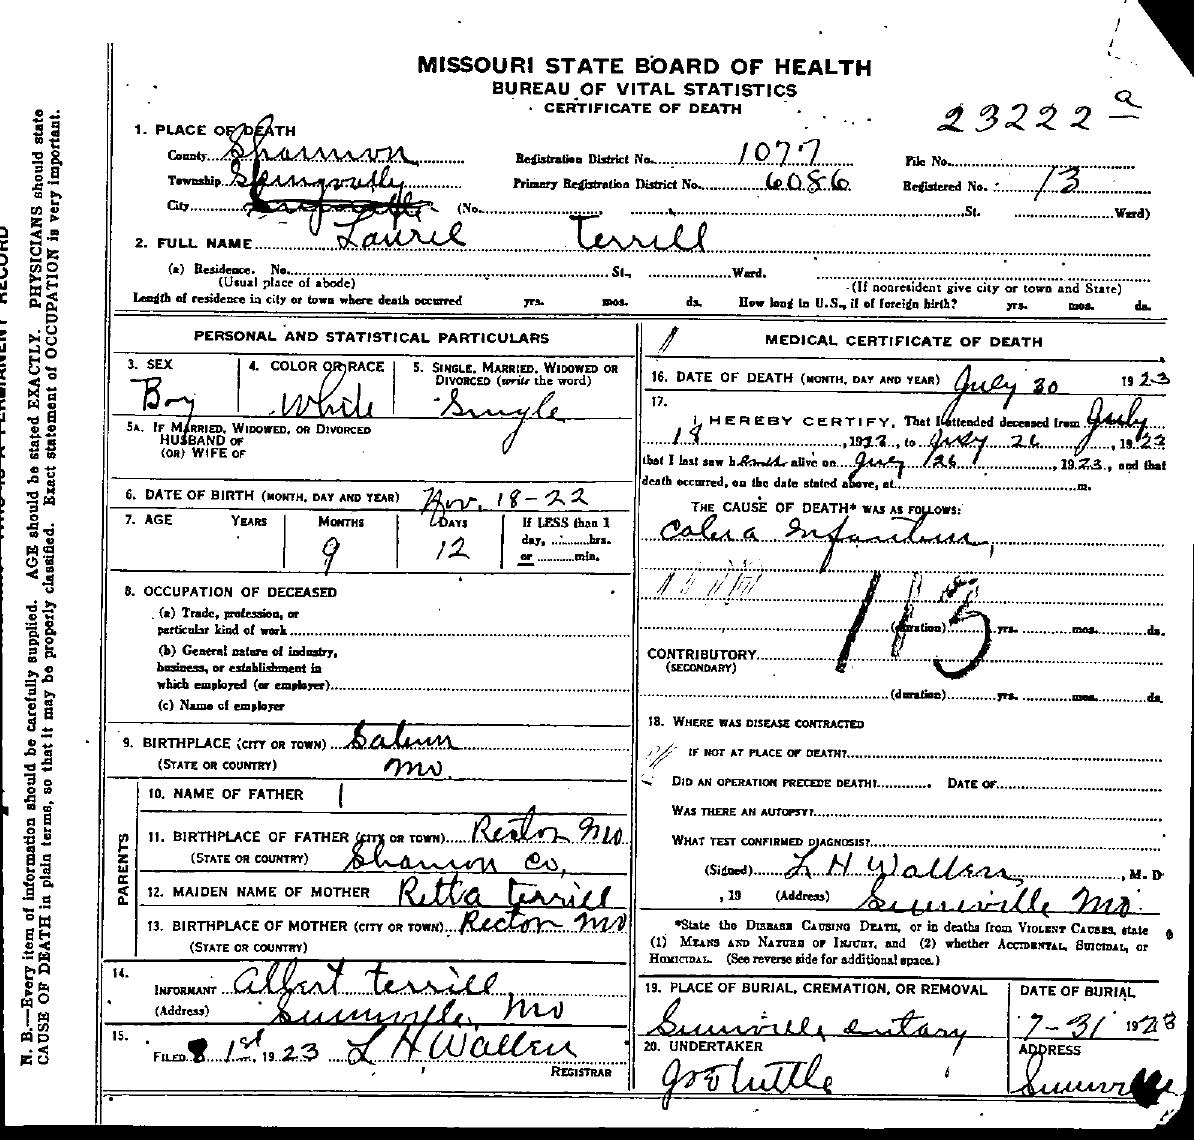 MISSOURI STATE BOARD OF HEALTH
BUREAU OF VITAL STATISTICS
CERTIFICATE OF DEATH
23222 a
1. PLACE OF DEATH
County Shannon Registration District No. 1077 File No.
Township Spring Primary Registration District No. 6086 Registered No. 13
City (No. St. Ward)
2. FULL NAME Laurel Terrill
(a) Residence. No. St., Ward.
(Usual place of abode) (If nonresident give city or town and State)
Length of residence in city or town where death occurred yrs. mos. ds. How long in U.S., if of foreign birth? yrs. mos. ds.
PERSONAL AND STATISTICAL PARTICULARS
3. SEX 4. COLOR OR RACE 5. SINGLE, MARRIED, WIDOWED OR DIVORCED (write the word)
Boy White Single
5A. IF MARRIED, WIDOWED, OR DIVORCED
HUSBAND OF
(OR) WIFE OF
6. DATE OF BIRTH (MONTH, DAY AND YEAR) Nov. 18-22
7. AGE YEARS MONTHS DAYS If LESS than 1
day, ........hrs.
or ........min.
9 12
8. OCCUPATION OF DECEASED
(a) Trade, profession, or
particular kind of work
(b) General nature of industry,
business, or establishment in
which employed (or employer)
(c) Name of employer
9. BIRTHPLACE (CITY OR TOWN) Salem
(STATE OR COUNTRY) Mo.
PARENTS
10. NAME OF FATHER
11. BIRTHPLACE OF FATHER (CITY OR TOWN) Rector Mo
(STATE OR COUNTRY) Shannon Co,
12. MAIDEN NAME OF MOTHER Retta Terrill
13. BIRTHPLACE OF MOTHER (CITY OR TOWN) Rector Mo
(STATE OR COUNTRY)
14.
INFORMANT Albert Terrill
(Address) Mo
15.
FILED 8 1st, 1923 L H Wallen
REGISTRAR
MEDICAL CERTIFICATE OF DEATH
16. DATE OF DEATH (MONTH, DAY AND YEAR) July 30 1923
17.
I HEREBY CERTIFY, That I attended deceased from July
18, 1923, to July 26, 1923
that I last saw h alive on July 26, 1923, and that
death occurred, on the date stated above, at m.
THE CAUSE OF DEATH* WAS AS FOLLOWS:
Colera Infantum,
113
(duration) yrs. mos. ds.
CONTRIBUTORY
(SECONDARY)
(duration) yrs. mos. ds.
18. WHERE WAS DISEASE CONTRACTED
IF NOT AT PLACE OF DEATH?
DID AN OPERATION PRECEDE DEATH? DATE OF
WAS THERE AN AUTOPSY?
WHAT TEST CONFIRMED DIAGNOSIS?
(Signed) L H Wallen, M. D
, 19 (Address) Mo.
*State the DISEASE CAUSING DEATH, or in deaths from VIOLENT CAUSES, state
(1) MEANS AND NATURE OF INJURY, and (2) whether ACCIDENTAL, SUICIDAL, or
HOMICIDAL. (See reverse side for additional space.)
19. PLACE OF BURIAL, CREMATION, OR REMOVAL DATE OF BURIAL
7-31 1923
20. UNDERTAKER ADDRESS
Joe Tuttle
N. B.—Every item of information should be carefully supplied. AGE should be stated EXACTLY. PHYSICIANS should state
CAUSE OF DEATH in plain terms, so that it may be properly classified. Exact statement of OCCUPATION is very important.